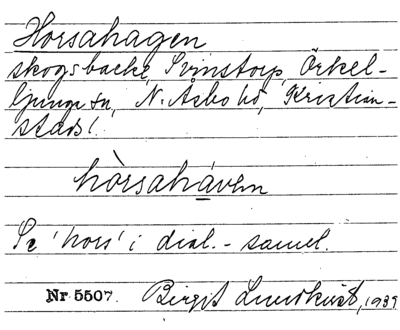 Horsahagen
skogsbacke, Svinstorp, Örkel-
ljunga sn, N. Åsbo hd, Kristian-
stads l.
hòrsahávhn
Se 'hors' i dial. - saml.
Nr 5507. Birgit Lundkvist, 1939